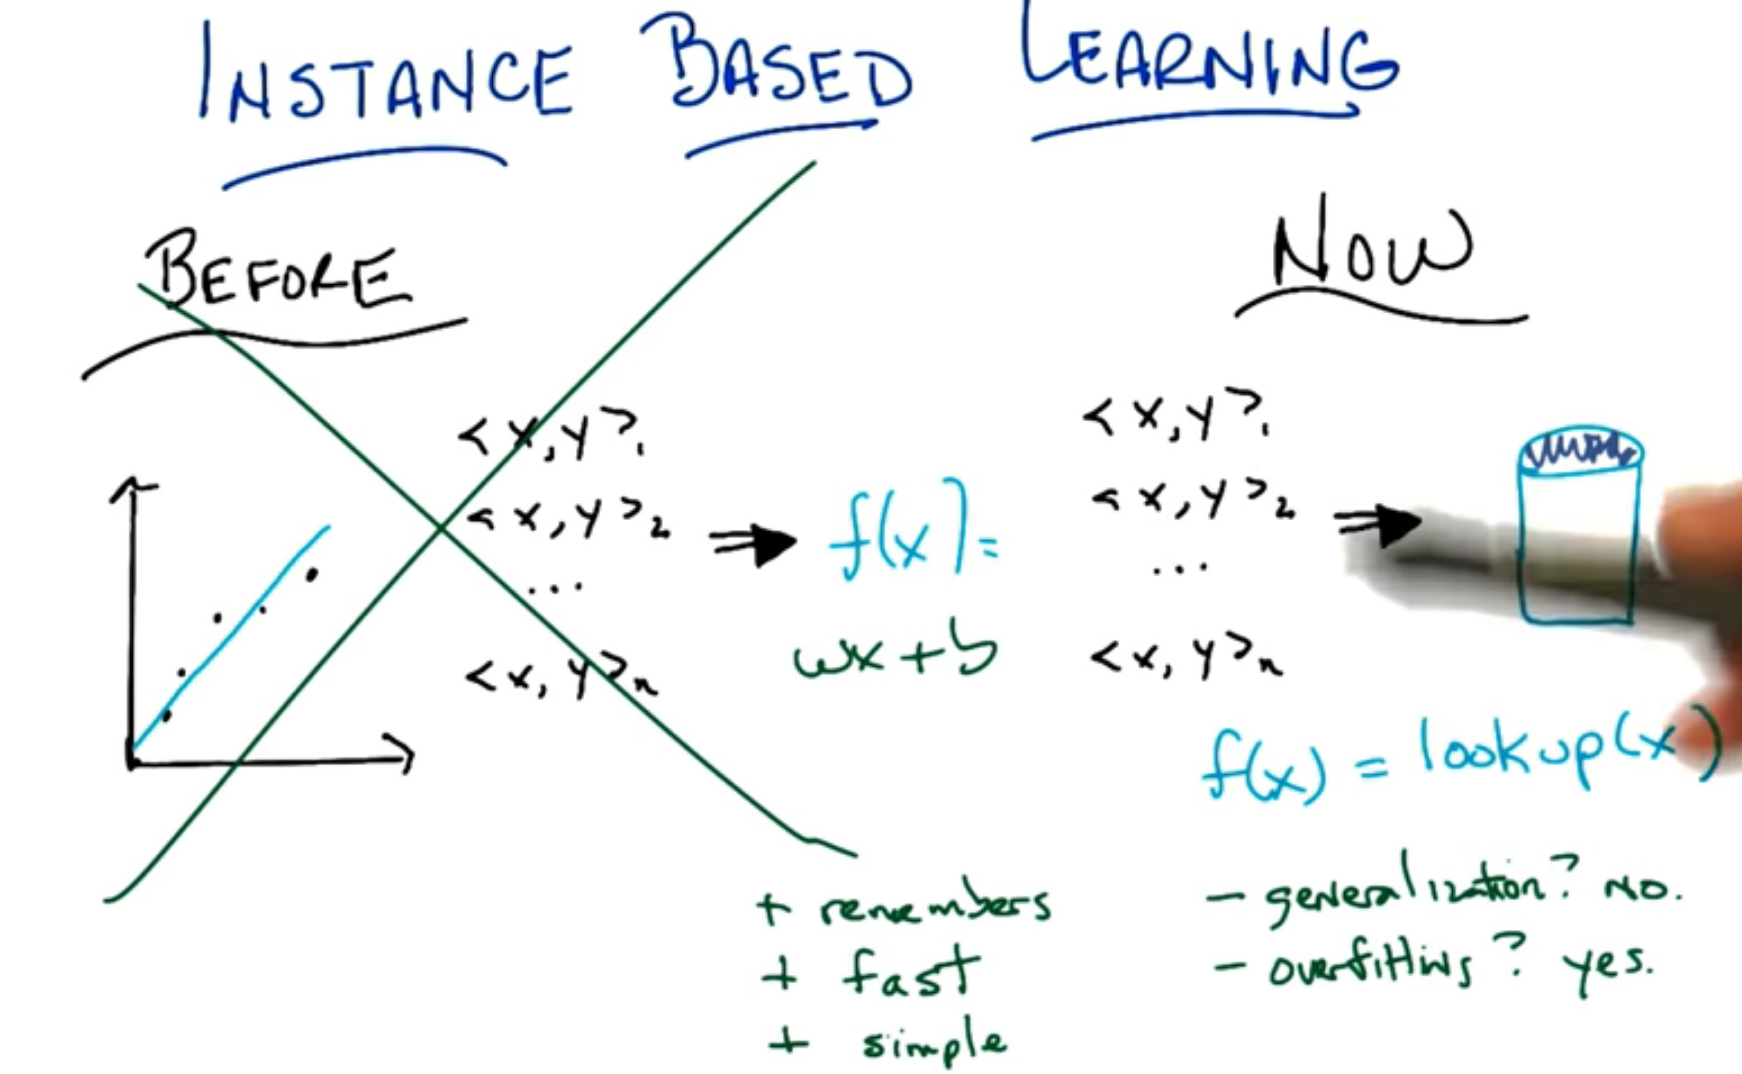 INSTANCE BASED LEARNING
BEFORE
<x,y>₁
<x,y>₂
...
<x,y>n
f(x)=
wx+b
NOW
<x,y>₁
<x,y>₂
...
<x,y>n
f(x) = lookup(x)
+ remembers
+ fast
+ simple
- generalization? no.
- overfitting? yes.